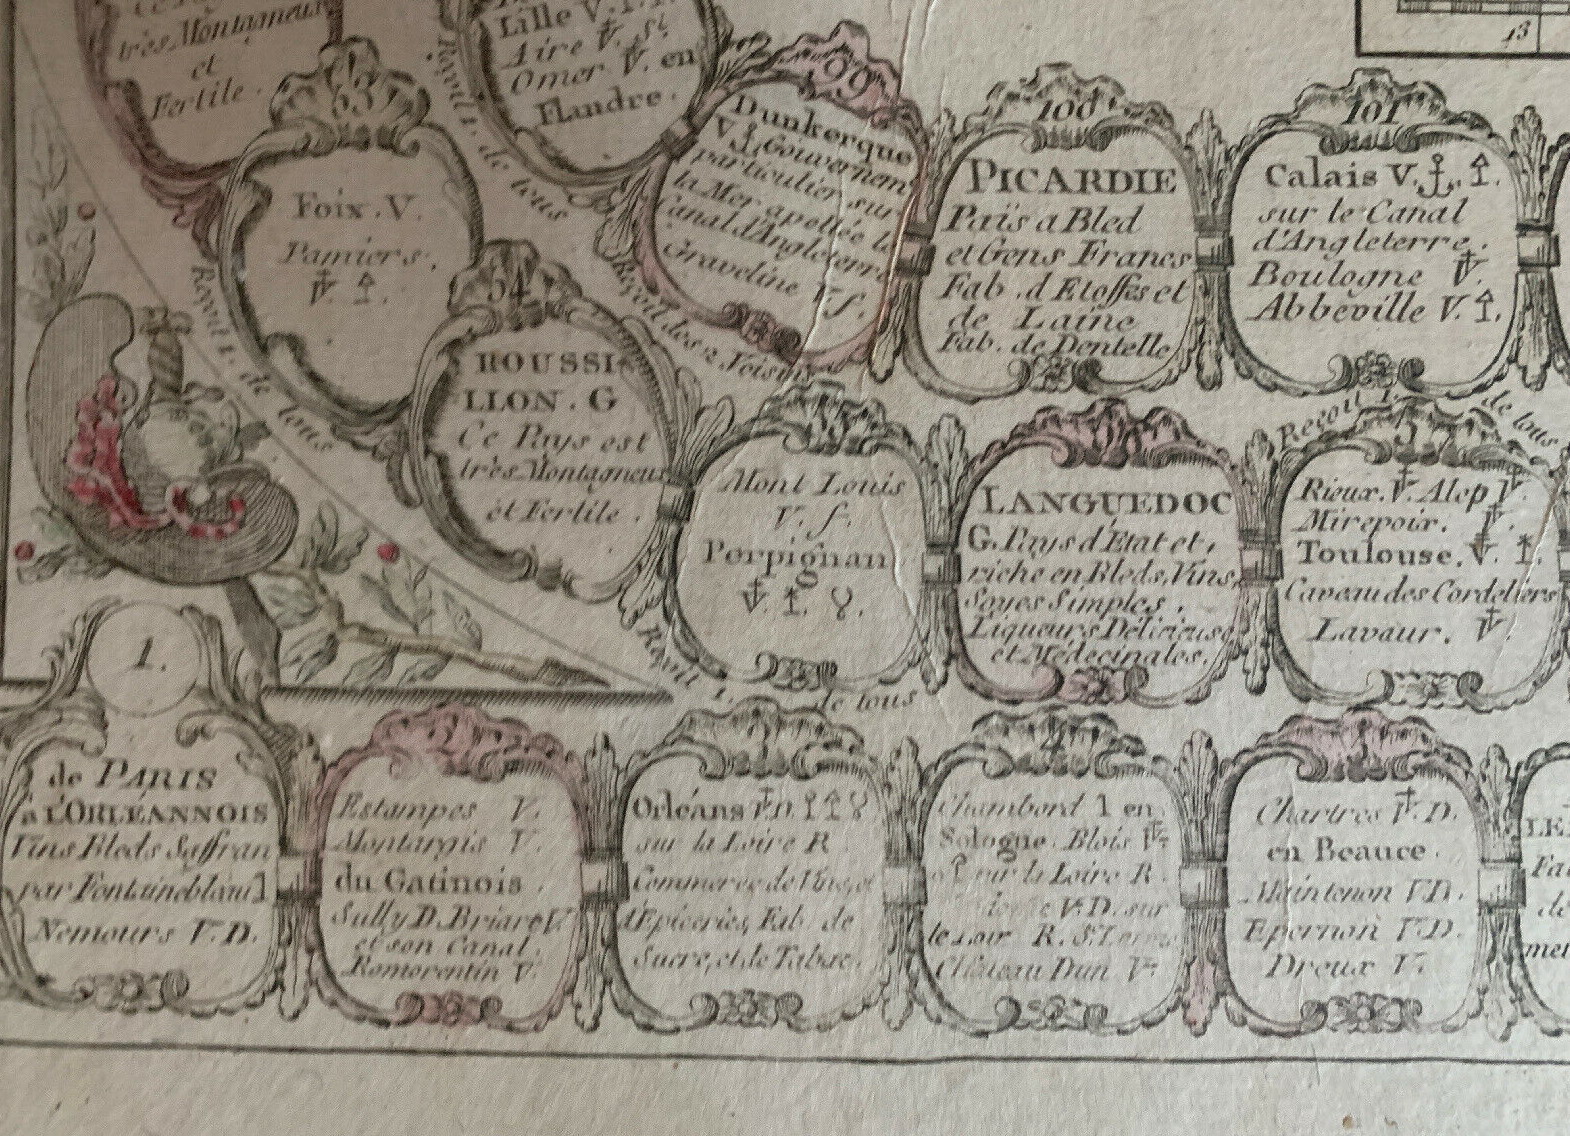 très Montagneus
et
Fertile.
Lille V.
Aire V. St.
Omer V. en
Flandre.
Reçoit 1. de tous
53
Foix. V.
Pamiers.
V.
Reçoit 1. de tous
54
ROUSSI
LLON. G
Ce Pays est
très Montagneux
et Fertile.
99
Dunkerque
V. Gouvernem
particulier sur
la Mer apellée le
Canal d'Angleterre
Graveline V f.
Reçoit des 2 Voisins
100
PICARDIE
Païs a Bled
et Gens Francs
Fab. d'Etoffes et
de Laine
Fab. de Dentelle
101
Calais V.
sur le Canal
d'Angleterre.
Boulogne V
Abbeville V.
13
Mont Louis
V. f.
Perpignan
V.
Reçoit 1. de tous
LANGUEDOC
G. Pays d'Etat et,
riche en Bleds, Vins,
Soyes Simples,
Liqueurs Delicieuse
et Médecinales,
Reçoit 1. de tous
57
Rieux. V. Alep V.
Mirepoix. V.
Toulouse. V.
Caveau des Cordeliers
Lavaur. V.
1.
de PARIS
a L'ORLEANNOIS
Vins Bleds Saffran
par Fontainebleau 1
Nemours V. D.
2
Estampes V.
Montargis V.
du Gatinois.
Sully D. Briare V.
et son Canal,
Romorentin V.
3
Orléans V D.
sur la Loire R.
Commerce de Vins, et
d'Epiceries, Fab. de
Sucre, et de Tabac
4
Chambord 1 en
Sologne. Blois V
sur la Loire R.
V. D. sur
le Loir R. St.
Château Dun V
5
Chartres V. D.
en Beauce.
Maintenon V. D.
Epernon V. D.
Dreux V.
LE
Fa
de
met